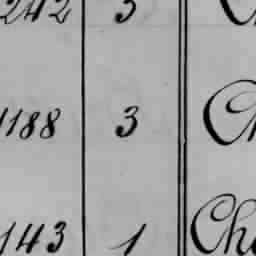 242 3
1188 3 Ch
143 1 Cha